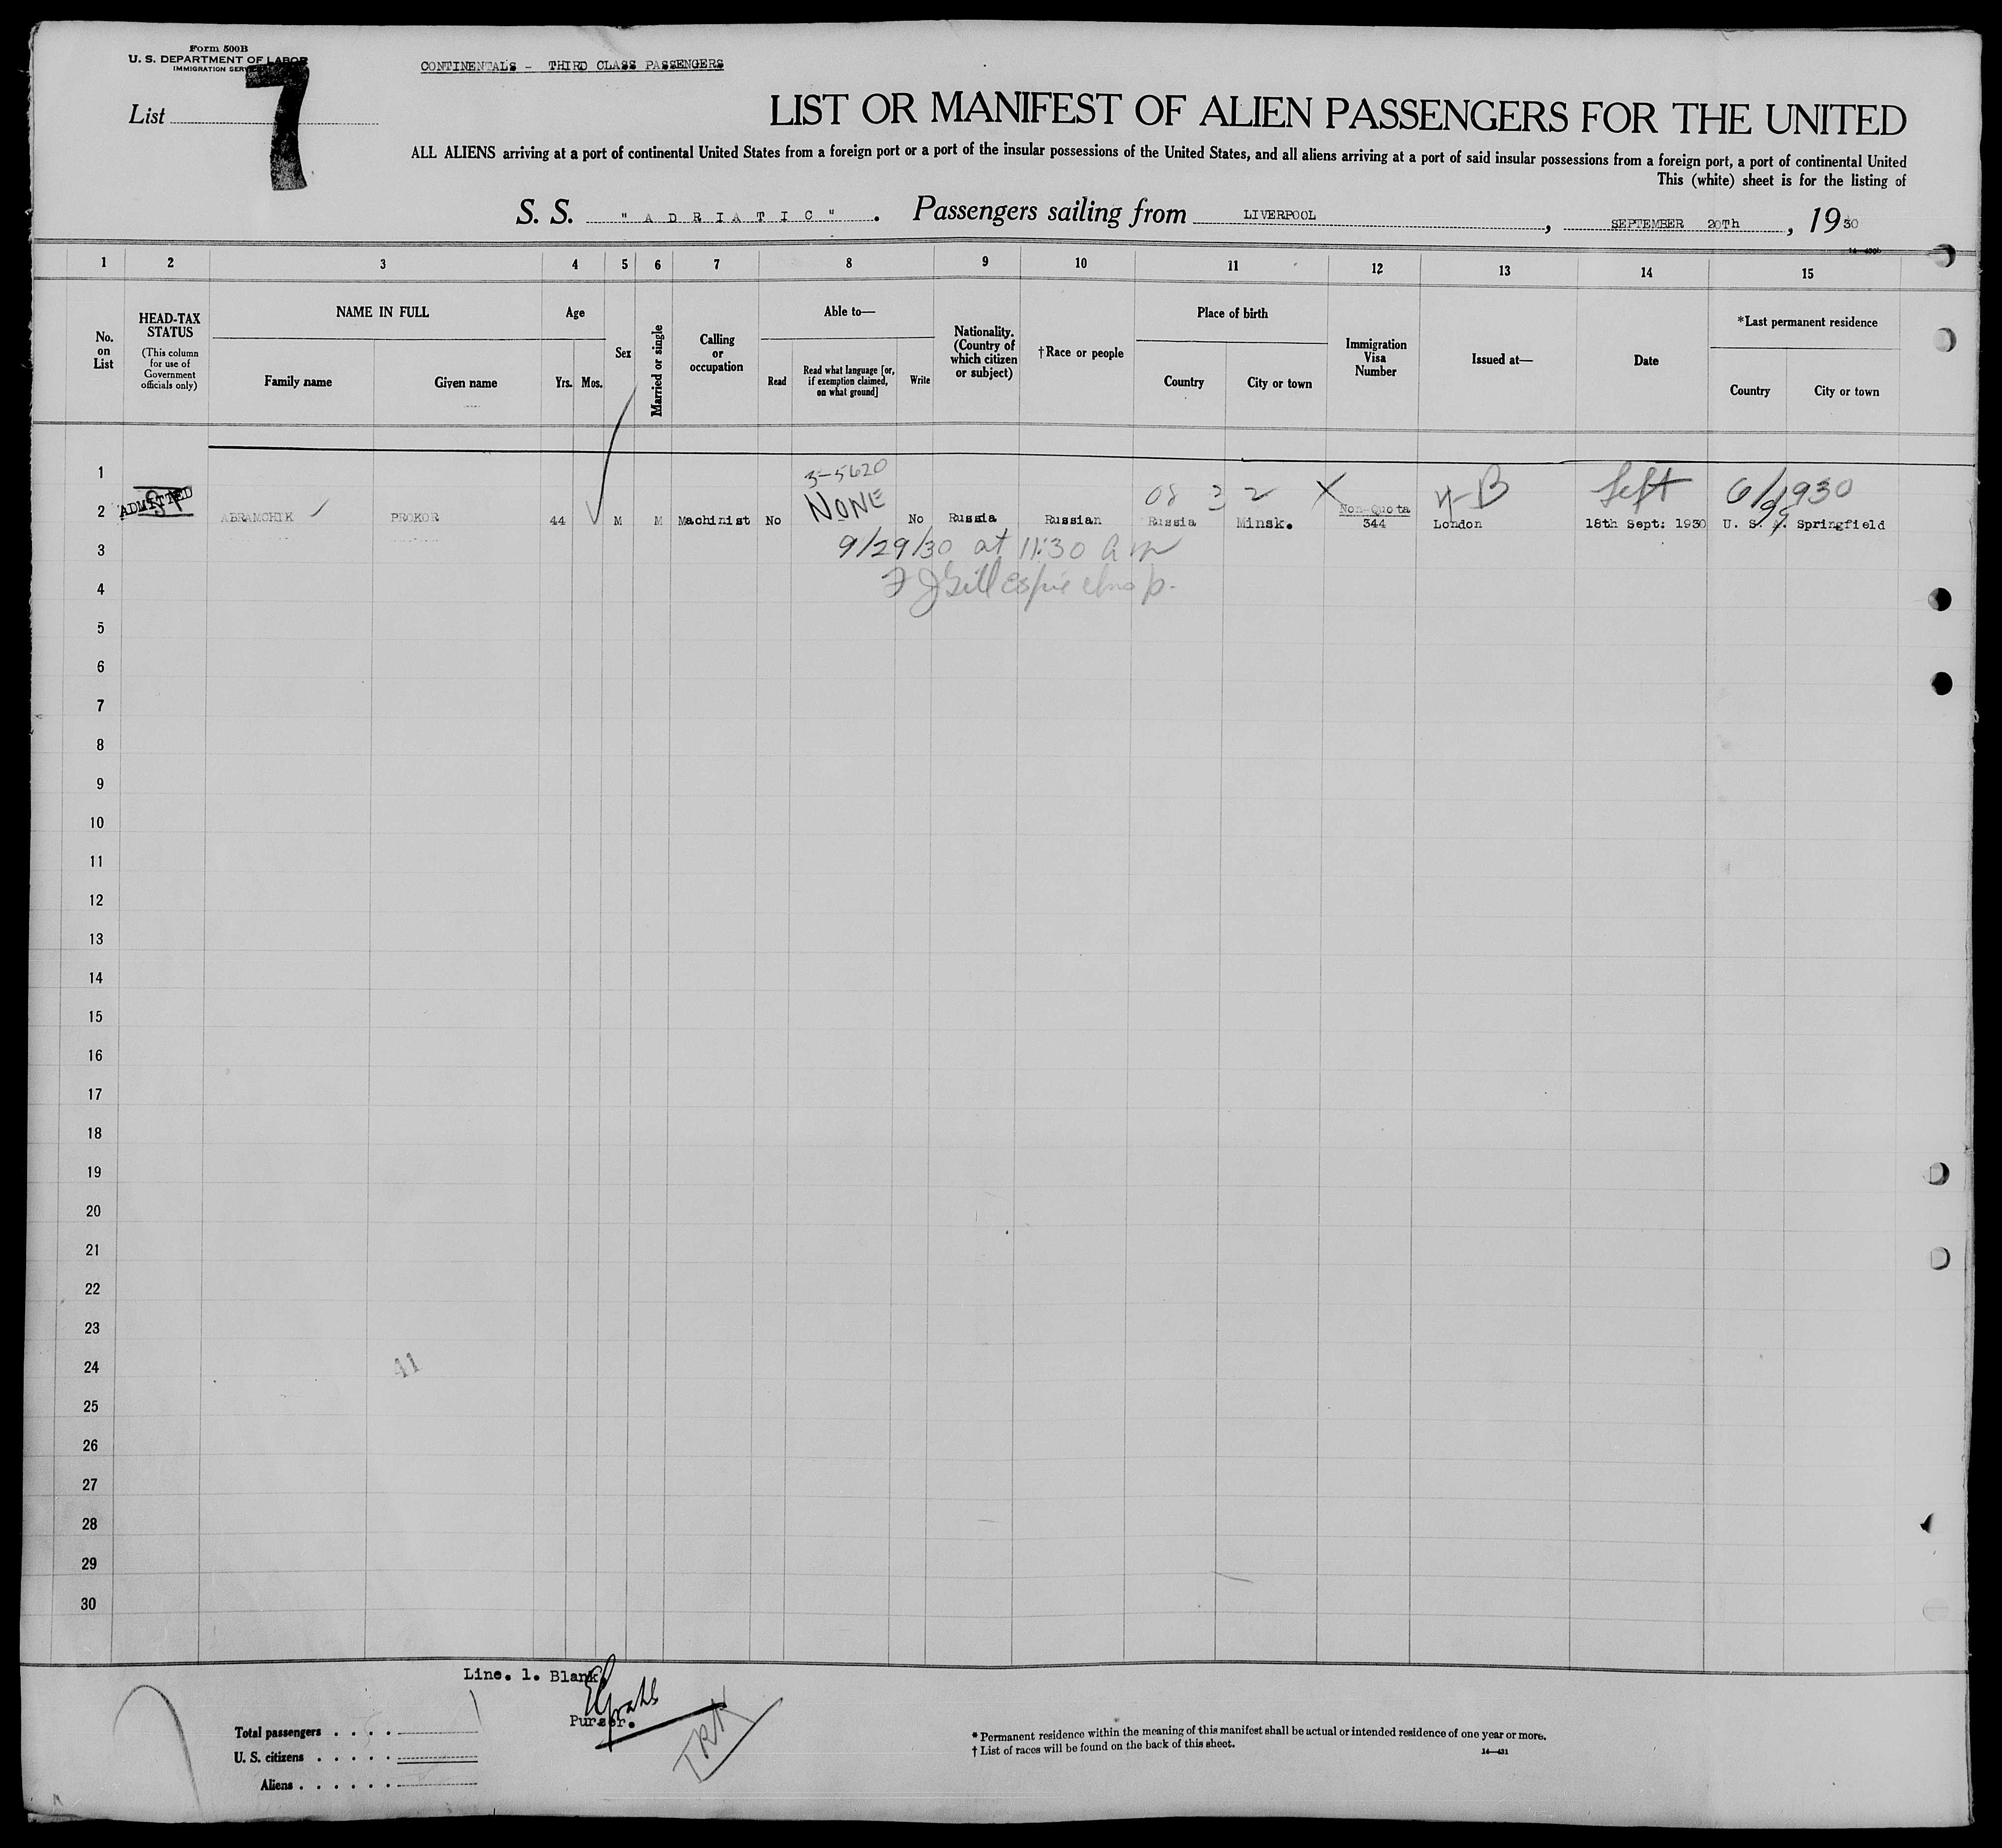 Form 500B
U. S. DEPARTMENT OF LABOR
IMMIGRATION SERVICE
CONTINENTALS - THIRD CLASS PASSENGERS
List 7
LIST OR MANIFEST OF ALIEN PASSENGERS FOR THE UNITED
ALL ALIENS arriving at a port of continental United States from a foreign port or a port of the insular possessions of the United States, and all aliens arriving at a port of said insular possessions from a foreign port, a port of continental United
This (white) sheet is for the listing of
S. S. "ADRIATIC". Passengers sailing from LIVERPOOL, SEPTEMBER 20Th, 1930
1 2 3 4 5 6 7 8 9 10 11 12 13 14 15
No. on List
HEAD-TAX STATUS
(This column for use of Government officials only)
NAME IN FULL
Family name
Given name
Age
Yrs. Mos.
Sex
Married or single
Calling or occupation
Able to—
Read
Read what language [or, if exemption claimed, on what ground]
Write
Nationality. (Country of which citizen or subject)
†Race or people
Place of birth
Country
City or town
Immigration Visa Number
Issued at—
Date
*Last permanent residence
Country
City or town
1 3-5620
2 ADMITTED ABRAMCHIK PROKOR 44 M M Machinist No NONE No Russia Russian Russia Minsk. Non-Quota 344 London 18th Sept: 1930 U. S. A. Springfield
3 9/29/30 at 11:30 am
4 Gillespie
5
6
7
8
9
10
11
12
13
14
15
16
17
18
19
20
21
22
23
24 41
25
26
27
28
29
30
Line. 1. Blank.
Purser.
Total passengers . . . .
U. S. citizens . . . . .
Aliens . . . . . .
* Permanent residence within the meaning of this manifest shall be actual or intended residence of one year or more.
† List of races will be found on the back of this sheet.
14—431